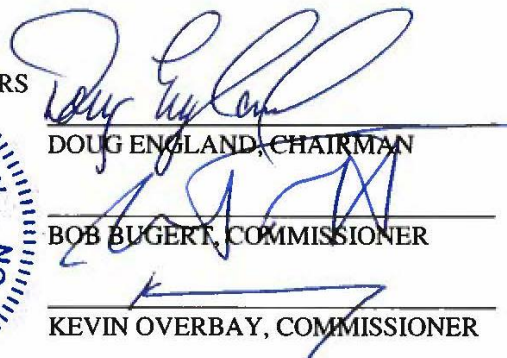 RS
Doug England
DOUG ENGLAND, CHAIRMAN
BOB BUGERT, COMMISSIONER
KEVIN OVERBAY, COMMISSIONER